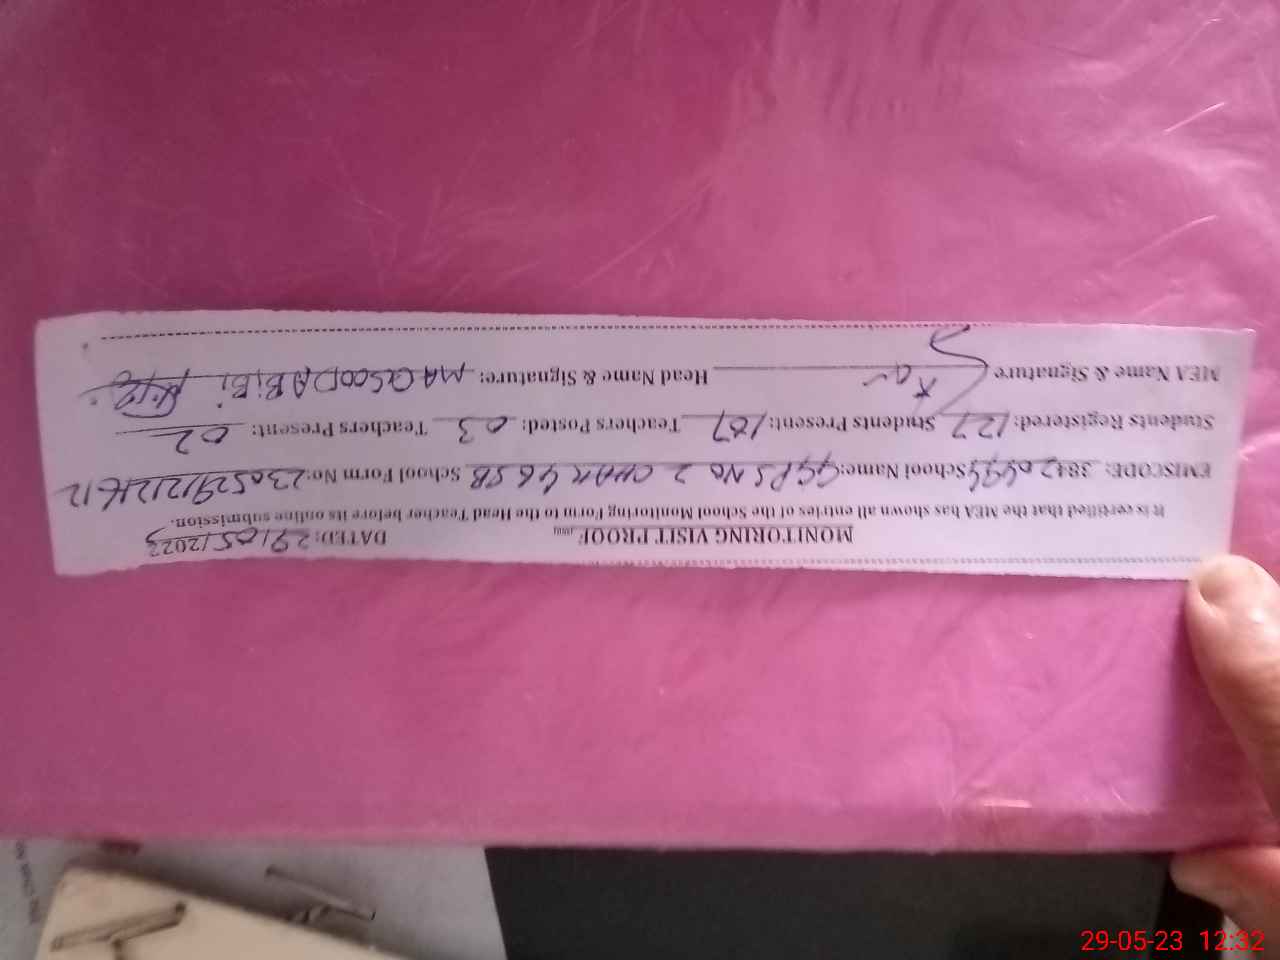 MONITORING VISIT PROOF DATED: 29/05/2023
It is certified that the MEA has shown all entries of the School Monitoring Form to the Head Teacher before its online submission.
EMISCODE: 3842 School Name: GGPS No 2 CHAK 46 SB School Form No: 230529121
Students Registered: 127 Students Present: 107 Teachers Posted: 03 Teachers Present: 02
MEA Name & Signature Head Name & Signature: MAQSOODA BiBi
29-05-23 12:32